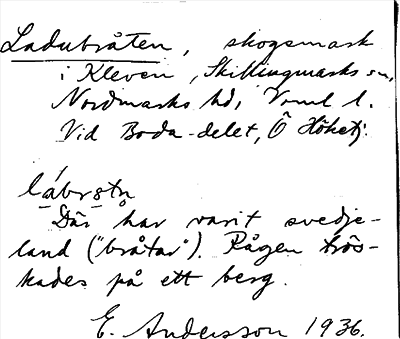 Ladubråten, skogsmark
i Kleven, Skillingmarks sn,
Nordmarks hd, Vrml l.
Vid Boda-delet, Ö Höketj.
lábrstn
Där har varit svedje-
land ("bråtar"). Rågen trös-
kades på ett berg.
E. Andersson 1936.